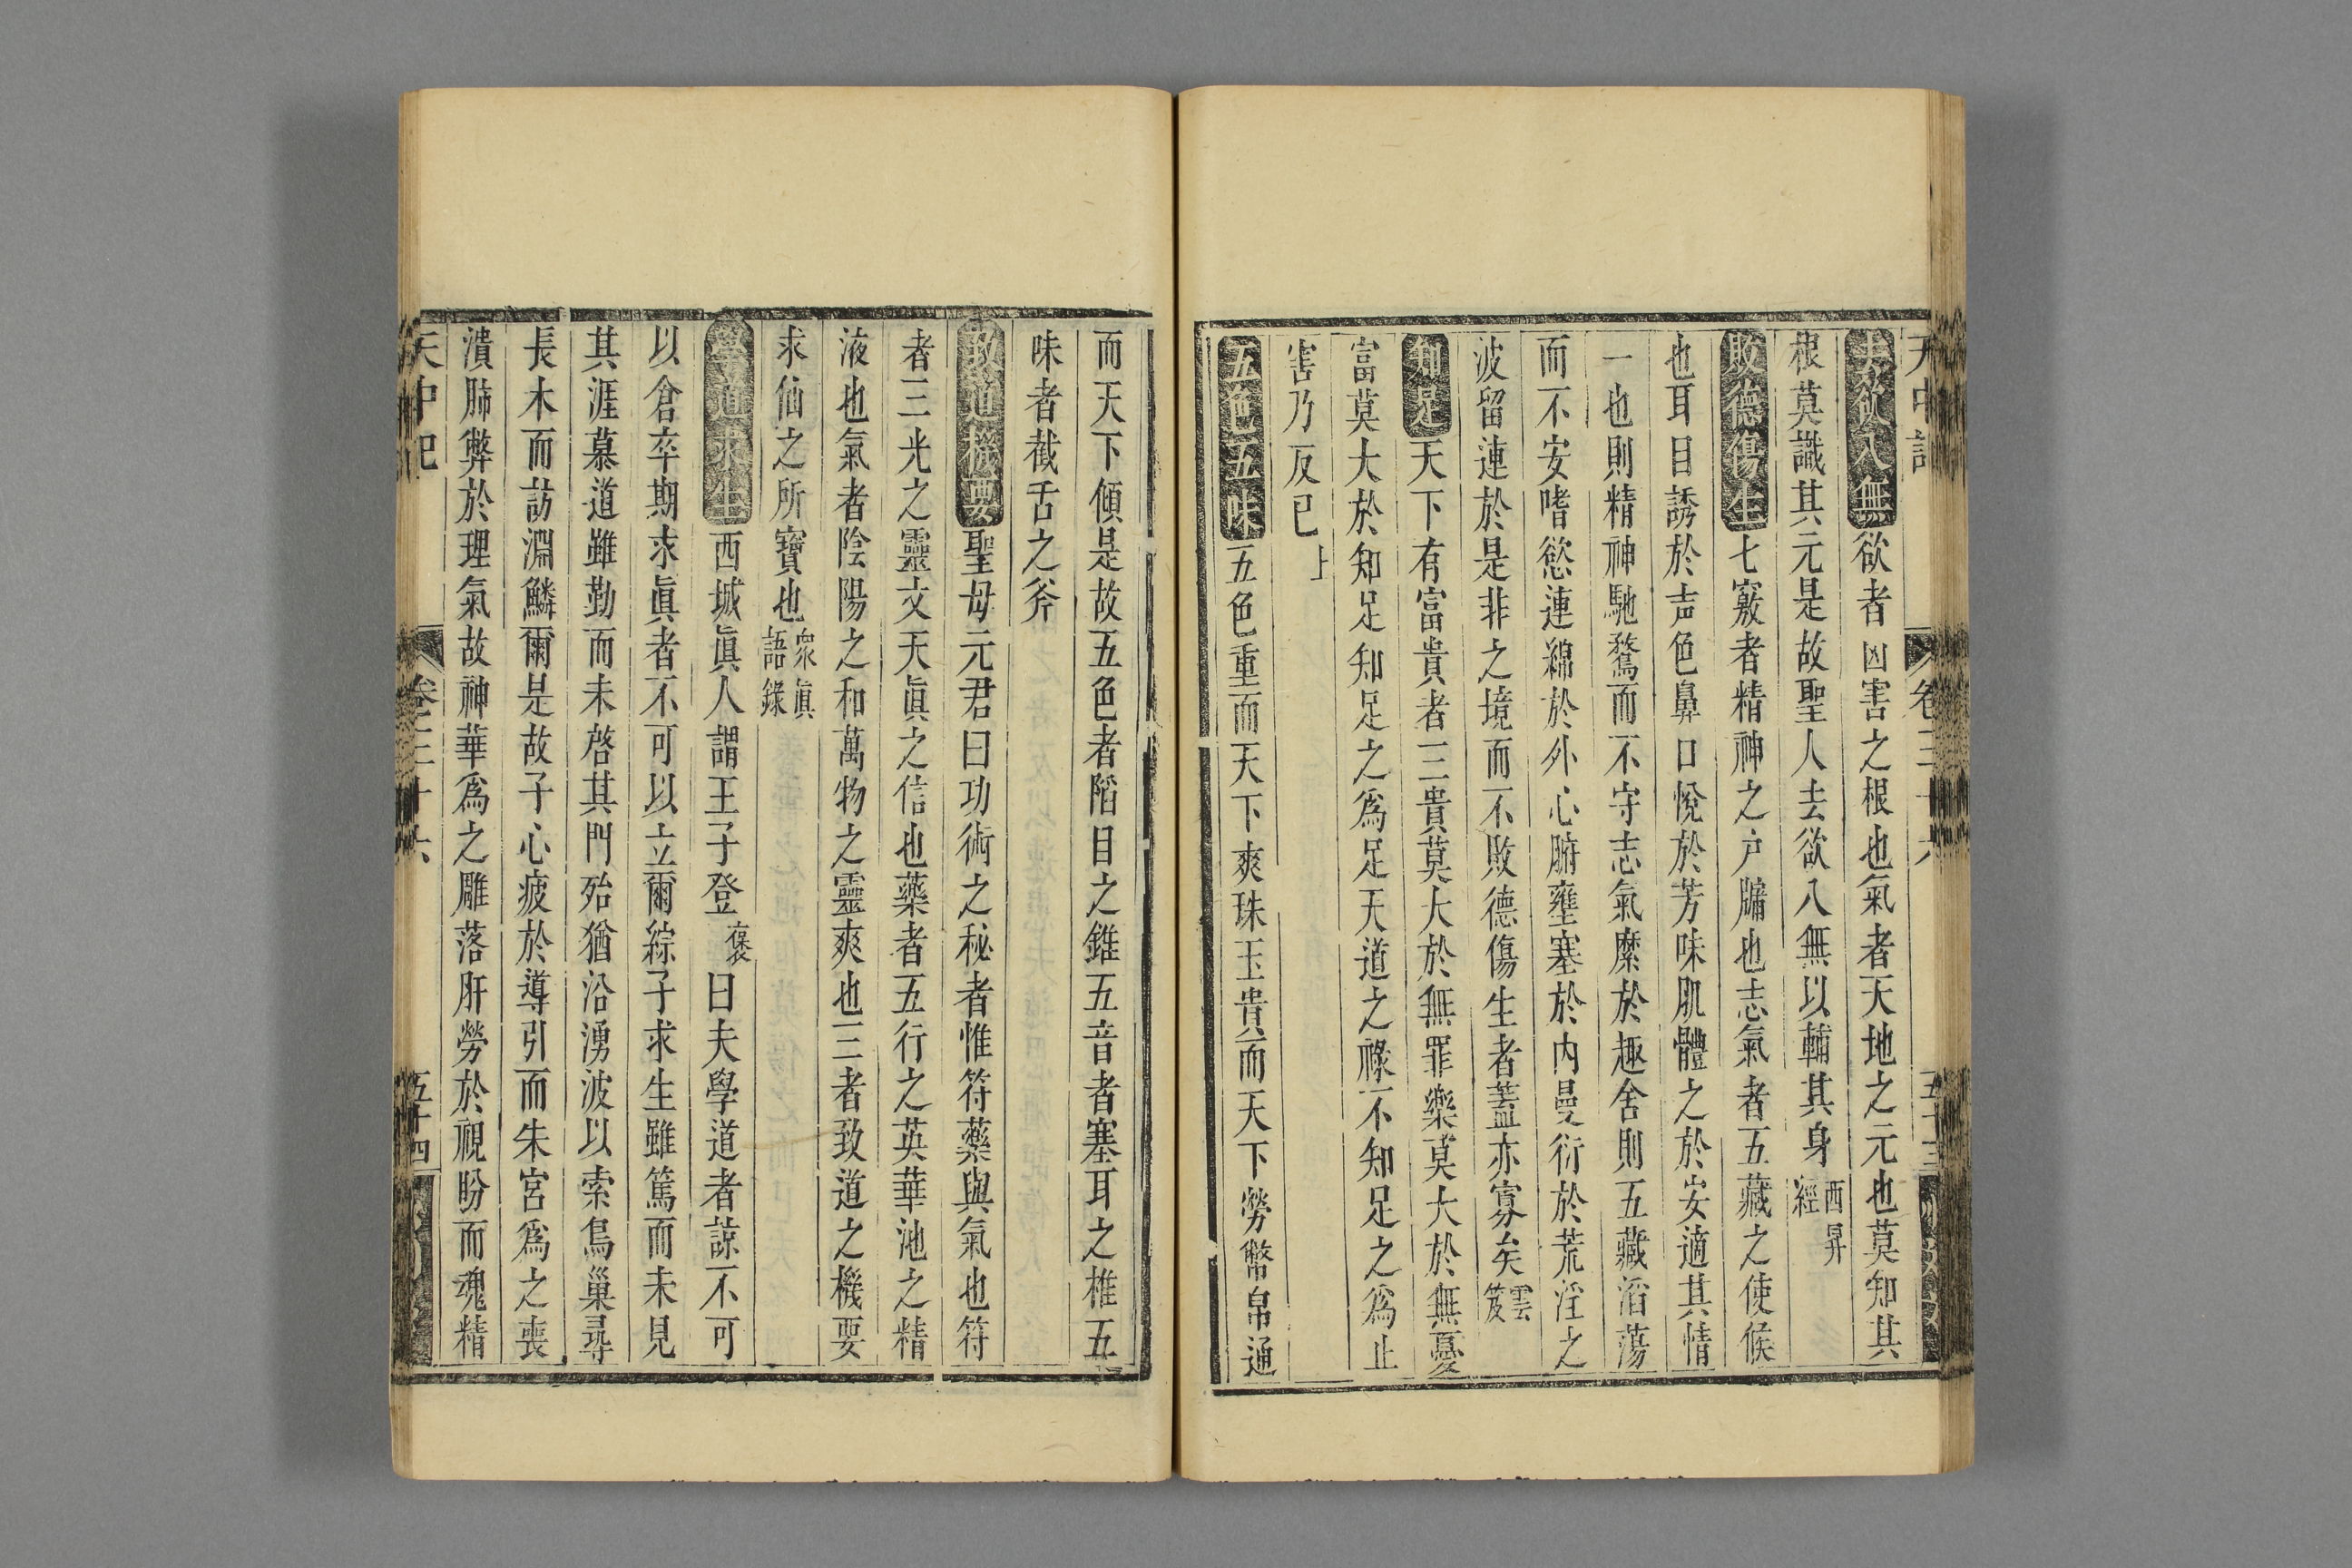 天中記 卷三十六 五十三
去欲入無欲者凶害之根也氣者天地之元也莫知其
根莫識其元是故聖人去欲入無以輔其身西昇經
敗德傷生七竅者精神之户牖也志氣者五藏之使候
也耳目誘於声色鼻口悅於芳味肌體之於安適其情
一也則精神馳騖而不守志氣縻於趣舍則五藏滔蕩
而不安嗜慾連綿於外心腑壅塞於内曼衍於荒淫之
波留連於是非之境而不敗德傷生者蓋亦寡矣雲笈
知足天下有富貴者三貴莫大於無罪樂莫大於無憂
富莫大於知足知足之爲足天道之祿不知足之爲止
害乃反已上
五色五味五色重而天下爽珠玉貴而天下勞幣帛通
而天下傾是故五色者陷目之錐五音者塞耳之椎五
味者截舌之斧
致道機要聖母元君曰功術之秘者惟符藥與氣也符
者三光之靈文天眞之信也藥者五行之英華池之精
液也氣者陰陽之和萬物之靈爽也三者致道之機要
求仙之所寶也衆眞語錄
學道求生西城眞人謂王子登褒曰夫學道者諒不可
以倉卒期求眞者不可以立爾綜子求生雖篤而未見
其涯慕道雖勤而未啓其門殆猶沿湧波以索鳥巢尋
長木而訪淵鱗爾是故子心疲於導引而朱宮爲之喪
潰肺弊於理氣故神華爲之雕落肝勞於視盼而魂精
天中記 卷三十六 五十四